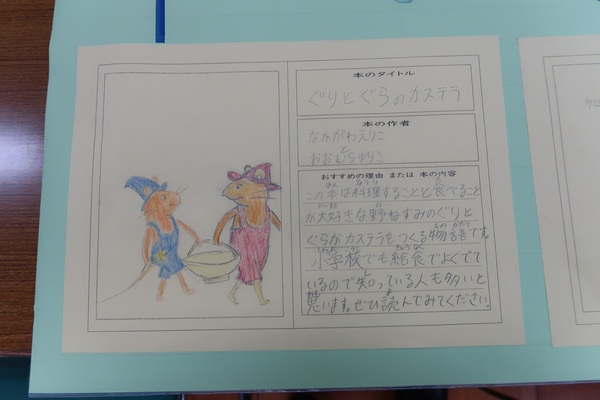 本のタイトル
ぐりとぐらのカステラ
本の作者
なかがわえりこ
と
おおむらゆりこ
おすすめの理由 または 本の内容
この本は料理することと食べること
が大好きな野ねずみのぐりと
ぐらがカステラをつくる物語です。
小学校でも給食でよくでて
いるので知っている人も多いと
思います。ぜひ読んでみてください。